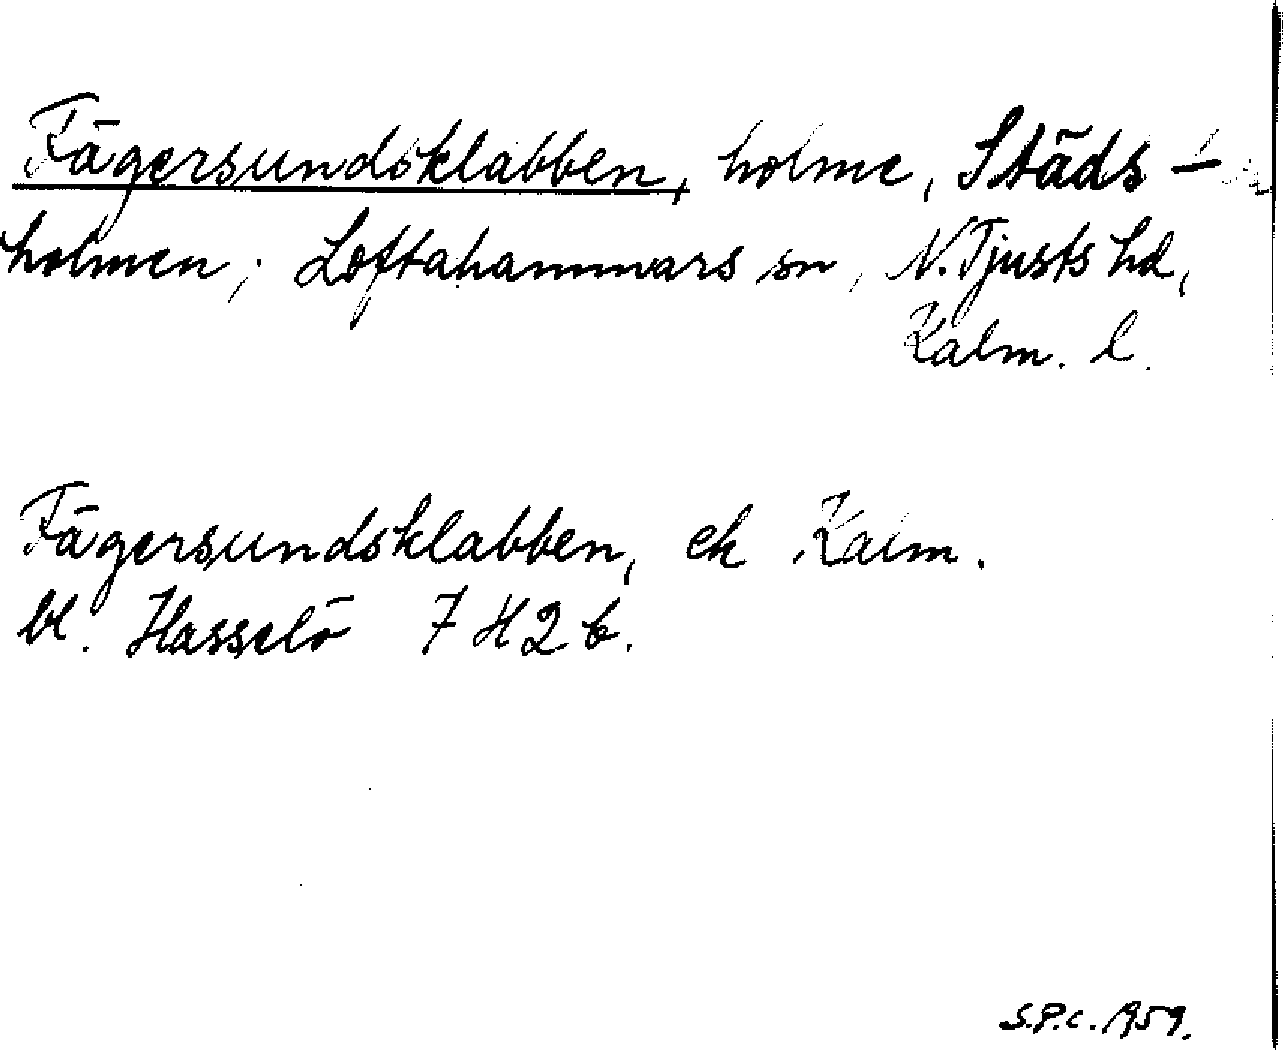 Fägersundsklabben, holme, Städs-
holmen, Loftahammars sn, N. Tjusts hd,
Kalm. l.
Fägersundsklabben, ek Kalm.
bl. Hasselö 7H2b.
S.P.c. 1959.